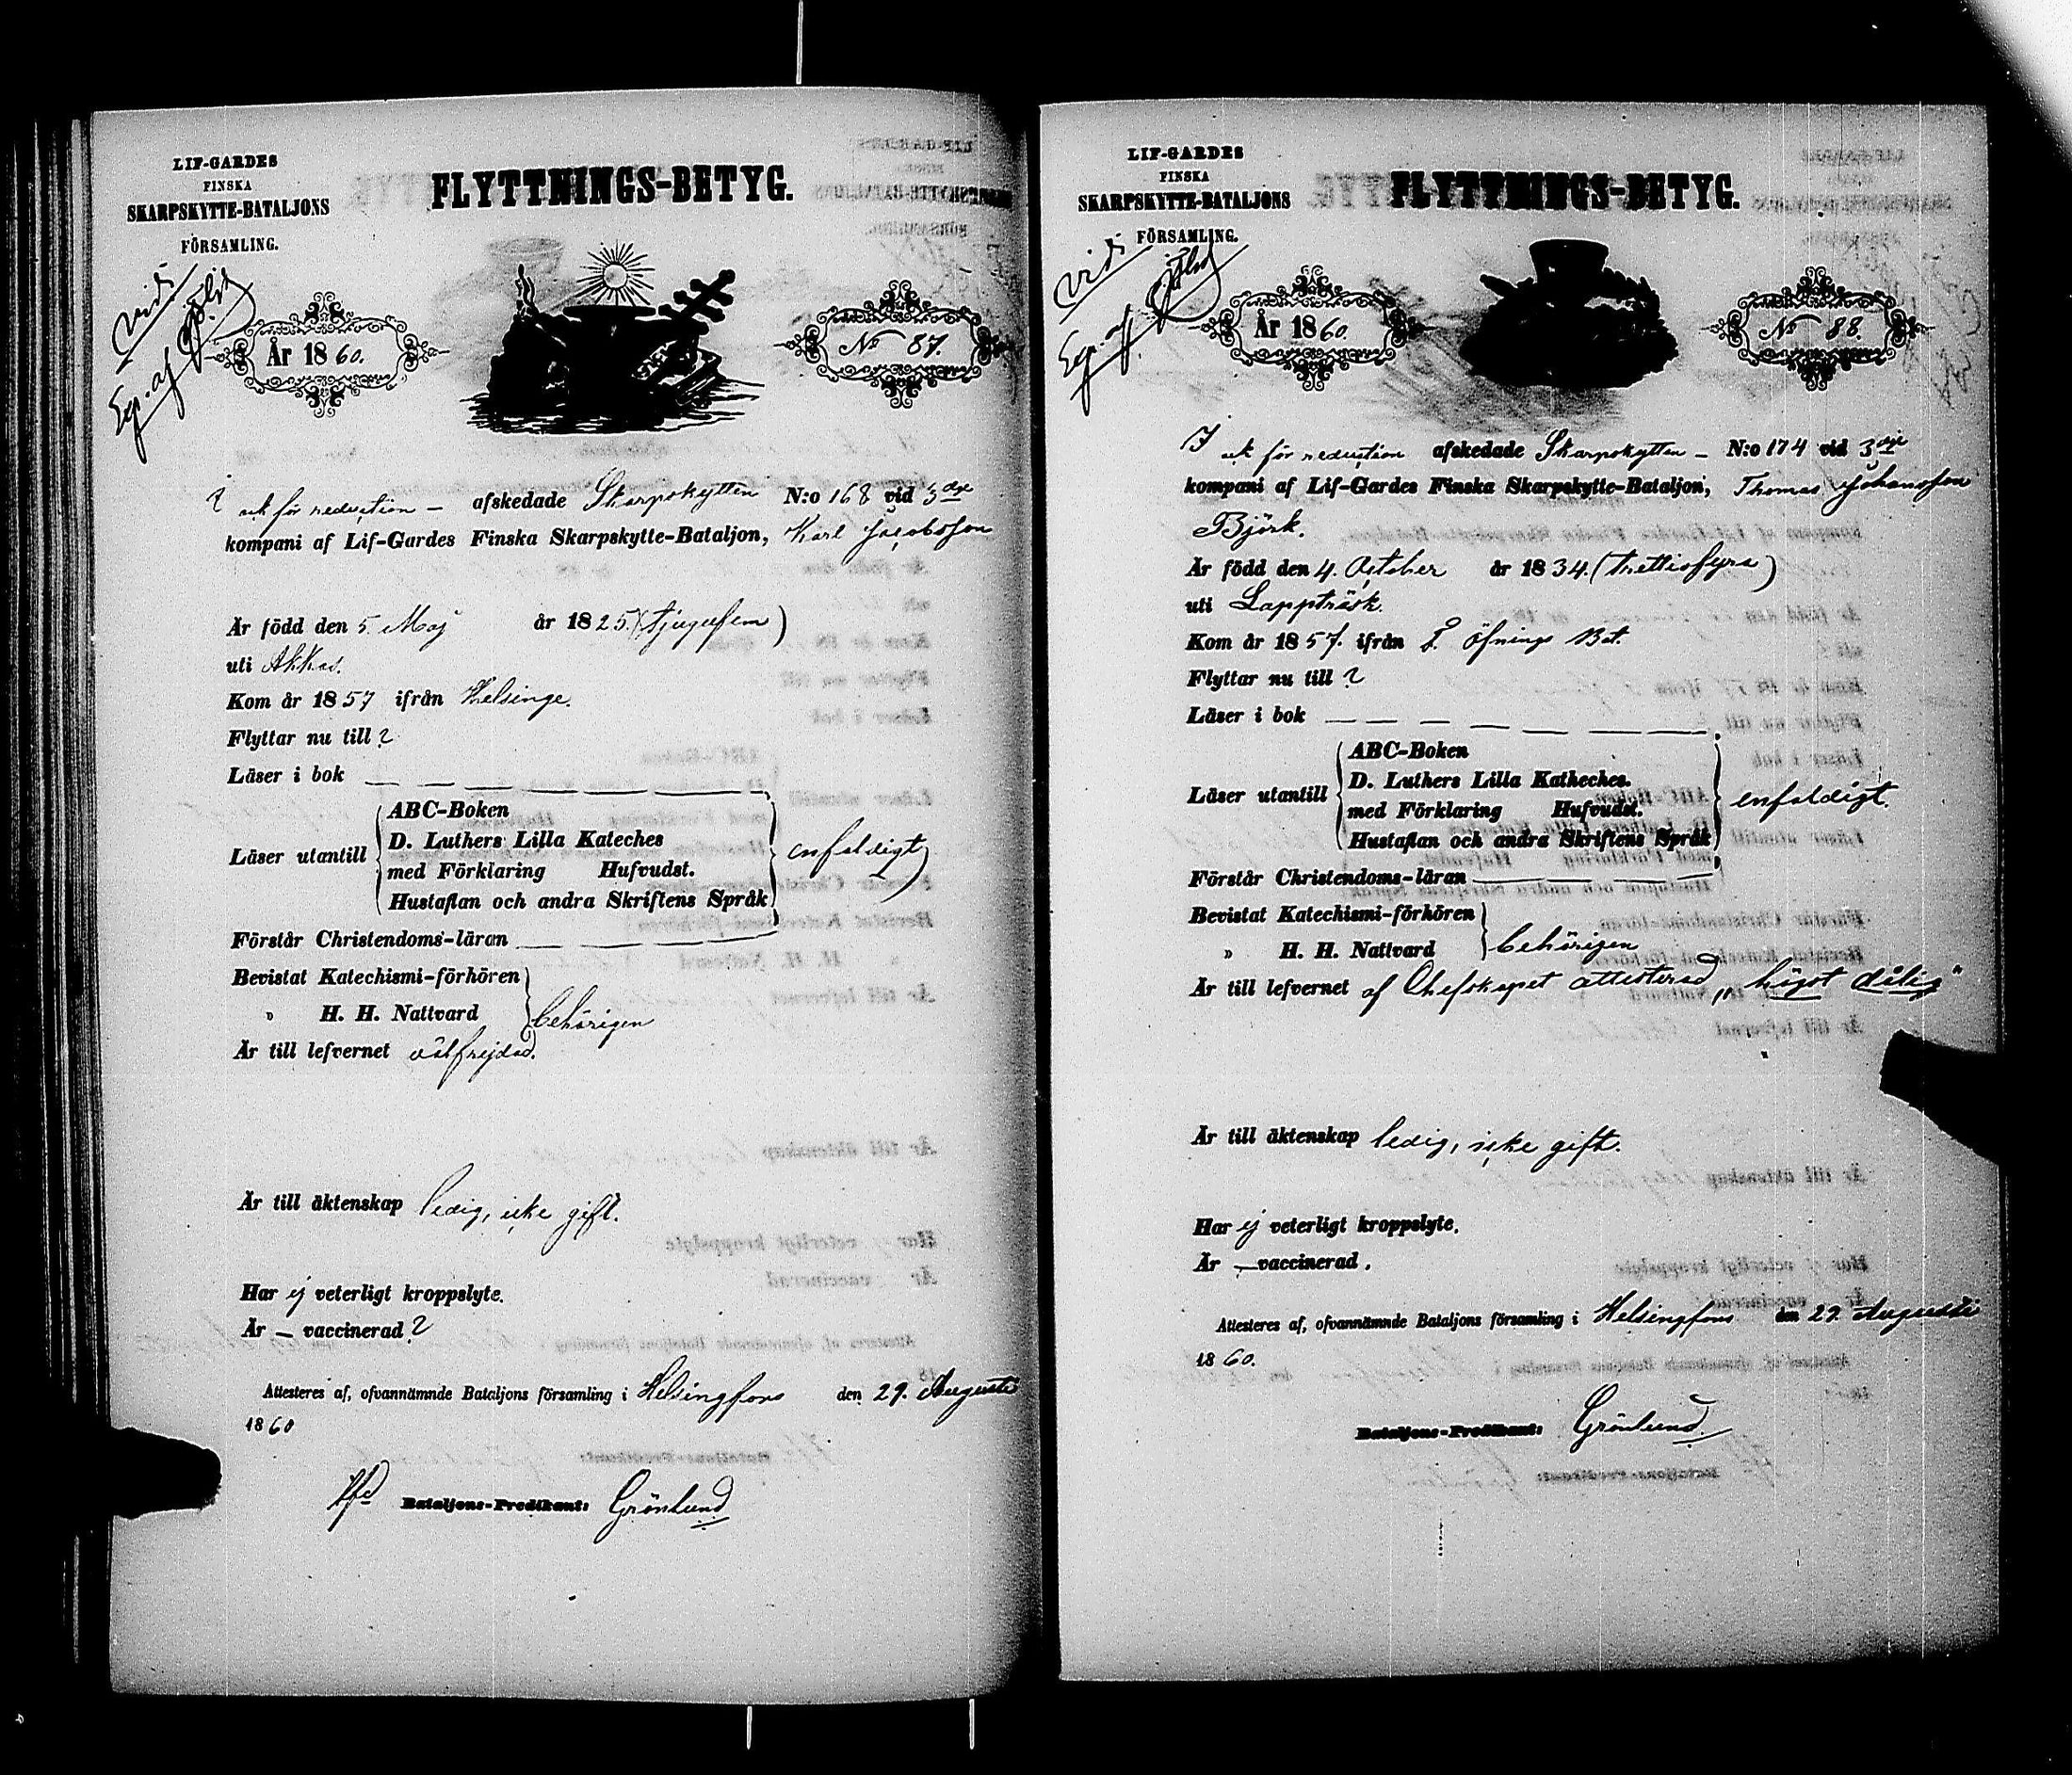 LIF-GARDES
FINSKA
SKARPSKYTTE-BATALJONS
FÖRSAMLING.
FLYTTNINGS-BETYG.
År 1860.
No 87.
afskedade Skarpskytten N:o 168 vid 3dje
kompani af Lif-Gardes Finska Skarpskytte-Bataljon, Karl Jacobsson
Är född den 5. Maj år 1825. (tjugufem)
uti Akkas.
Kom år 1857 ifrån Helsinge.
Flyttar nu till ?
Läser i bok — — — — — —
Läser utantill
ABC-Boken
D. Luthers Lilla Kateches
med Förklaring Hufvudst.
Hustaflan och andra Skriftens Språk
enfaldigt
Förstår Christendoms-läran — — — —
Bevistat Katechismi-förhören
" H. H. Nattvard
behörigen
Är till lefvernet välfrejdad.
Är till äktenskap ledig, icke gift.
Har ej veterligt kroppslyte.
Är — vaccinerad ?
Attesteres af, ofvannämnde Bataljons församling i Helsingfors den 29. Augusti
1860
Bataljons-Predikant: Grönlund
LIF-GARDES
FINSKA
SKARPSKYTTE-BATALJONS
FÖRSAMLING.
FLYTTNINGS-BETYG.
År 1860.
No 88.
för reduction afskedade Skarpskytten — N:o 174 vid 3dje
kompani af Lif-Gardes Finska Skarpskytte-Bataljon, Thomas Johansson
Björk.
Är född den 4. October år 1834. (trettiofyra)
uti Lappträsk.
Kom år 1857. ifrån öfnings Bat.
Flyttar nu till ?
Läser i bok — — — — — —
Läser utantill
ABC-Boken
D. Luthers Lilla Katheches.
med Förklaring Hufvudst.
Hustaflan och andra Skriftens Språk
enfaldigt.
Förstår Christendoms-läran — — — —
Bevistat Katechismi-förhören
" H. H. Nattvard
behörigen
Är till lefvernet af Chefskapet attesterad „högst dålig"
Är till äktenskap ledig, icke gift.
Har ej veterligt kroppslyte.
Är — vaccinerad.
Attesteres af, ofvannämnde Bataljons församling i Helsingfors den 29. Augusti
1860.
Bataljons-Predikant: Grönlund